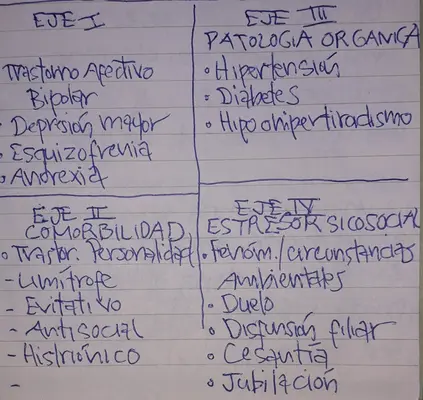 EJE I
Trastorno Afectivo
Bipolar
• Depresión mayor
• Esquizofrenia
• Anorexia
EJE III
PATOLOGIA ORGANICA
• Hipertensión
• Diabetes
• Hipo o hipertiroidismo
EJE II
COMORBILIDAD
• Trastor. Personalidad
- Limítrofe
- Evitativo
- Antisocial
- Histriónico
-
EJE IV
ESTRESOR SICOSOCIAL
• Fenóm./circunstancias
Ambientales
• Duelo
• Disfunsión filiar
• Cesantía
• Jubilación